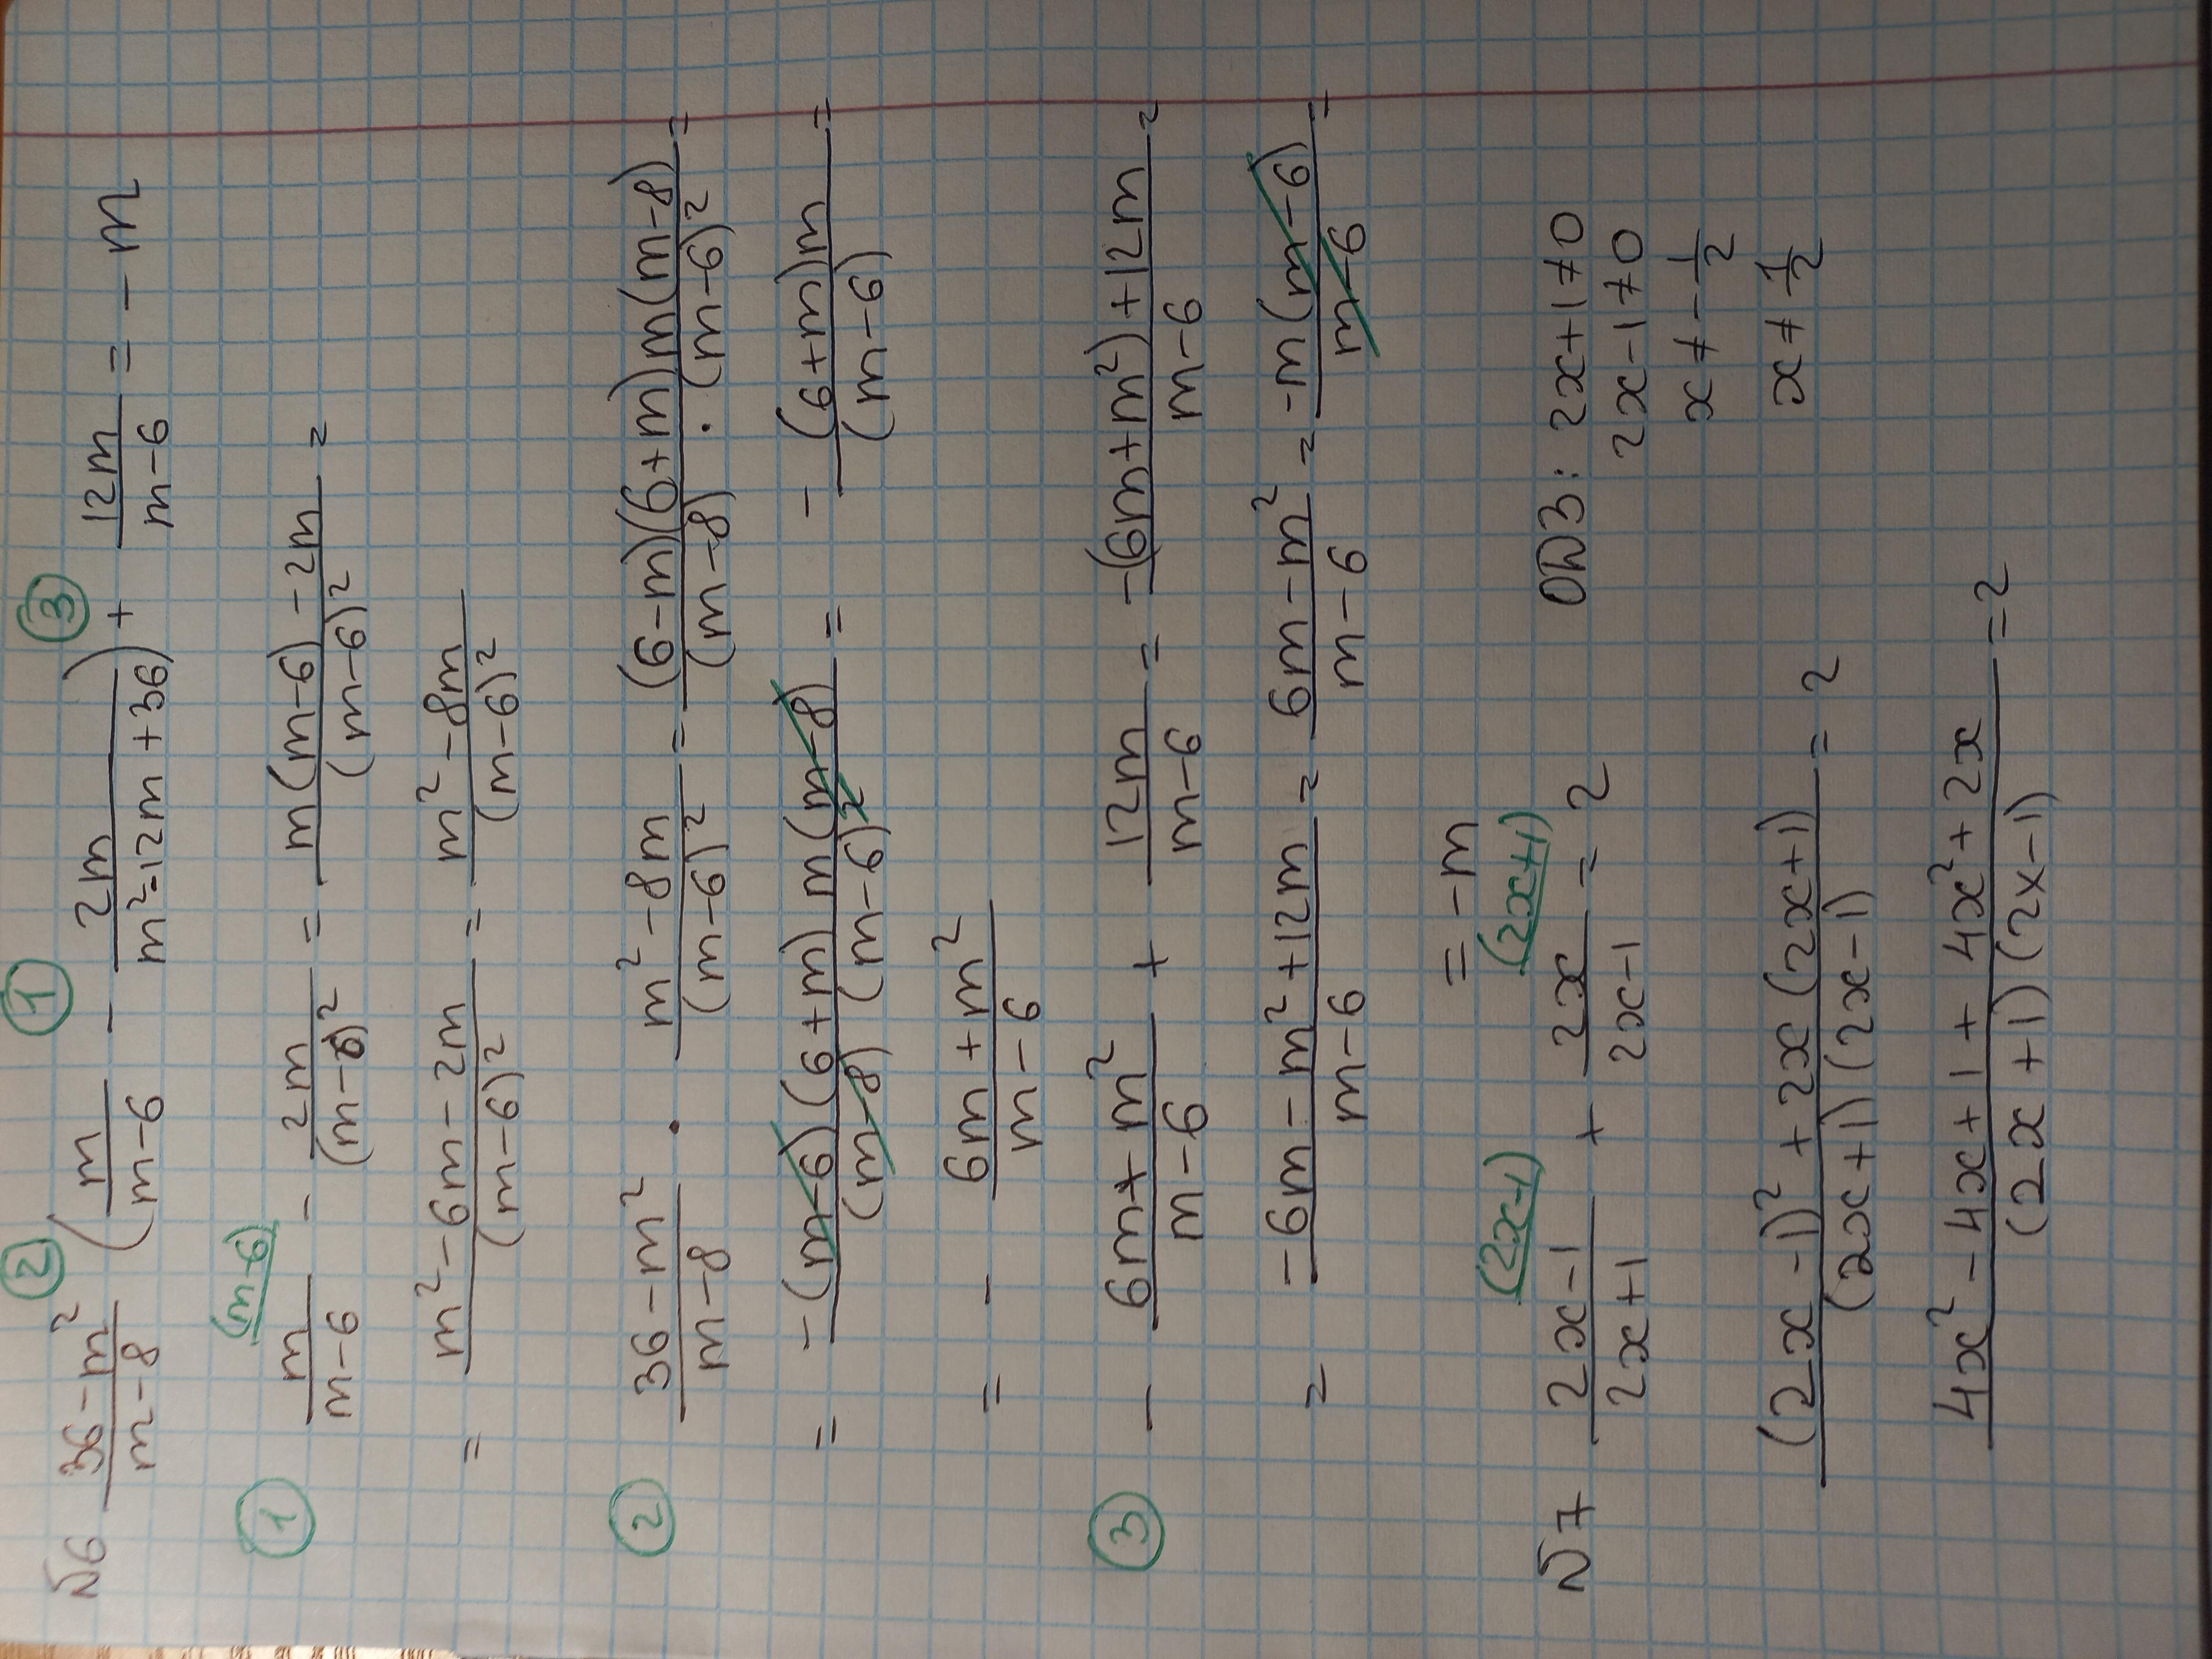 ② ① ③
№6 \frac{36-m^2}{m-8} \left(\frac{m}{m-6} - \frac{2m}{m^2-12m+36}\right) + \frac{12m}{m-6} = -m
① \frac{m}{m-6}^{(m-6)} - \frac{2m}{(m-6)^2} = \frac{m(m-6)-2m}{(m-6)^2} =
= \frac{m^2-6m-2m}{(m-6)^2} = \frac{m^2-8m}{(m-6)^2}
② \frac{36-m^2}{m-8} \cdot \frac{m^2-8m}{(m-6)^2} = \frac{(6-m)(6+m)m(m-8)}{(m-8) \cdot (m-6)^2} =
= -\frac{(m-6)(6+m)m(m-8)}{(m-8)(m-6)^2} = -\frac{(6+m)m}{(m-6)} =
= -\frac{6m+m^2}{m-6}
③ -\frac{6m+m^2}{m-6} + \frac{12m}{m-6} = \frac{-(6m+m^2)+12m}{m-6} =
= \frac{-6m-m^2+12m}{m-6} = \frac{6m-m^2}{m-6} = \frac{-m(m-6)}{m-6} =
= -m
№7 \frac{2x-1}{2x+1}^{(2x-1)} + \frac{2x}{2x-1}^{(2x+1)} = 2 ОДЗ: 2x+1≠0
2x-1≠0
x≠-\frac{1}{2}
\frac{(2x-1)^2+2x(2x+1)}{(2x+1)(2x-1)} = 2 x≠\frac{1}{2}
\frac{4x^2-4x+1+4x^2+2x}{(2x+1)(2x-1)} = 2